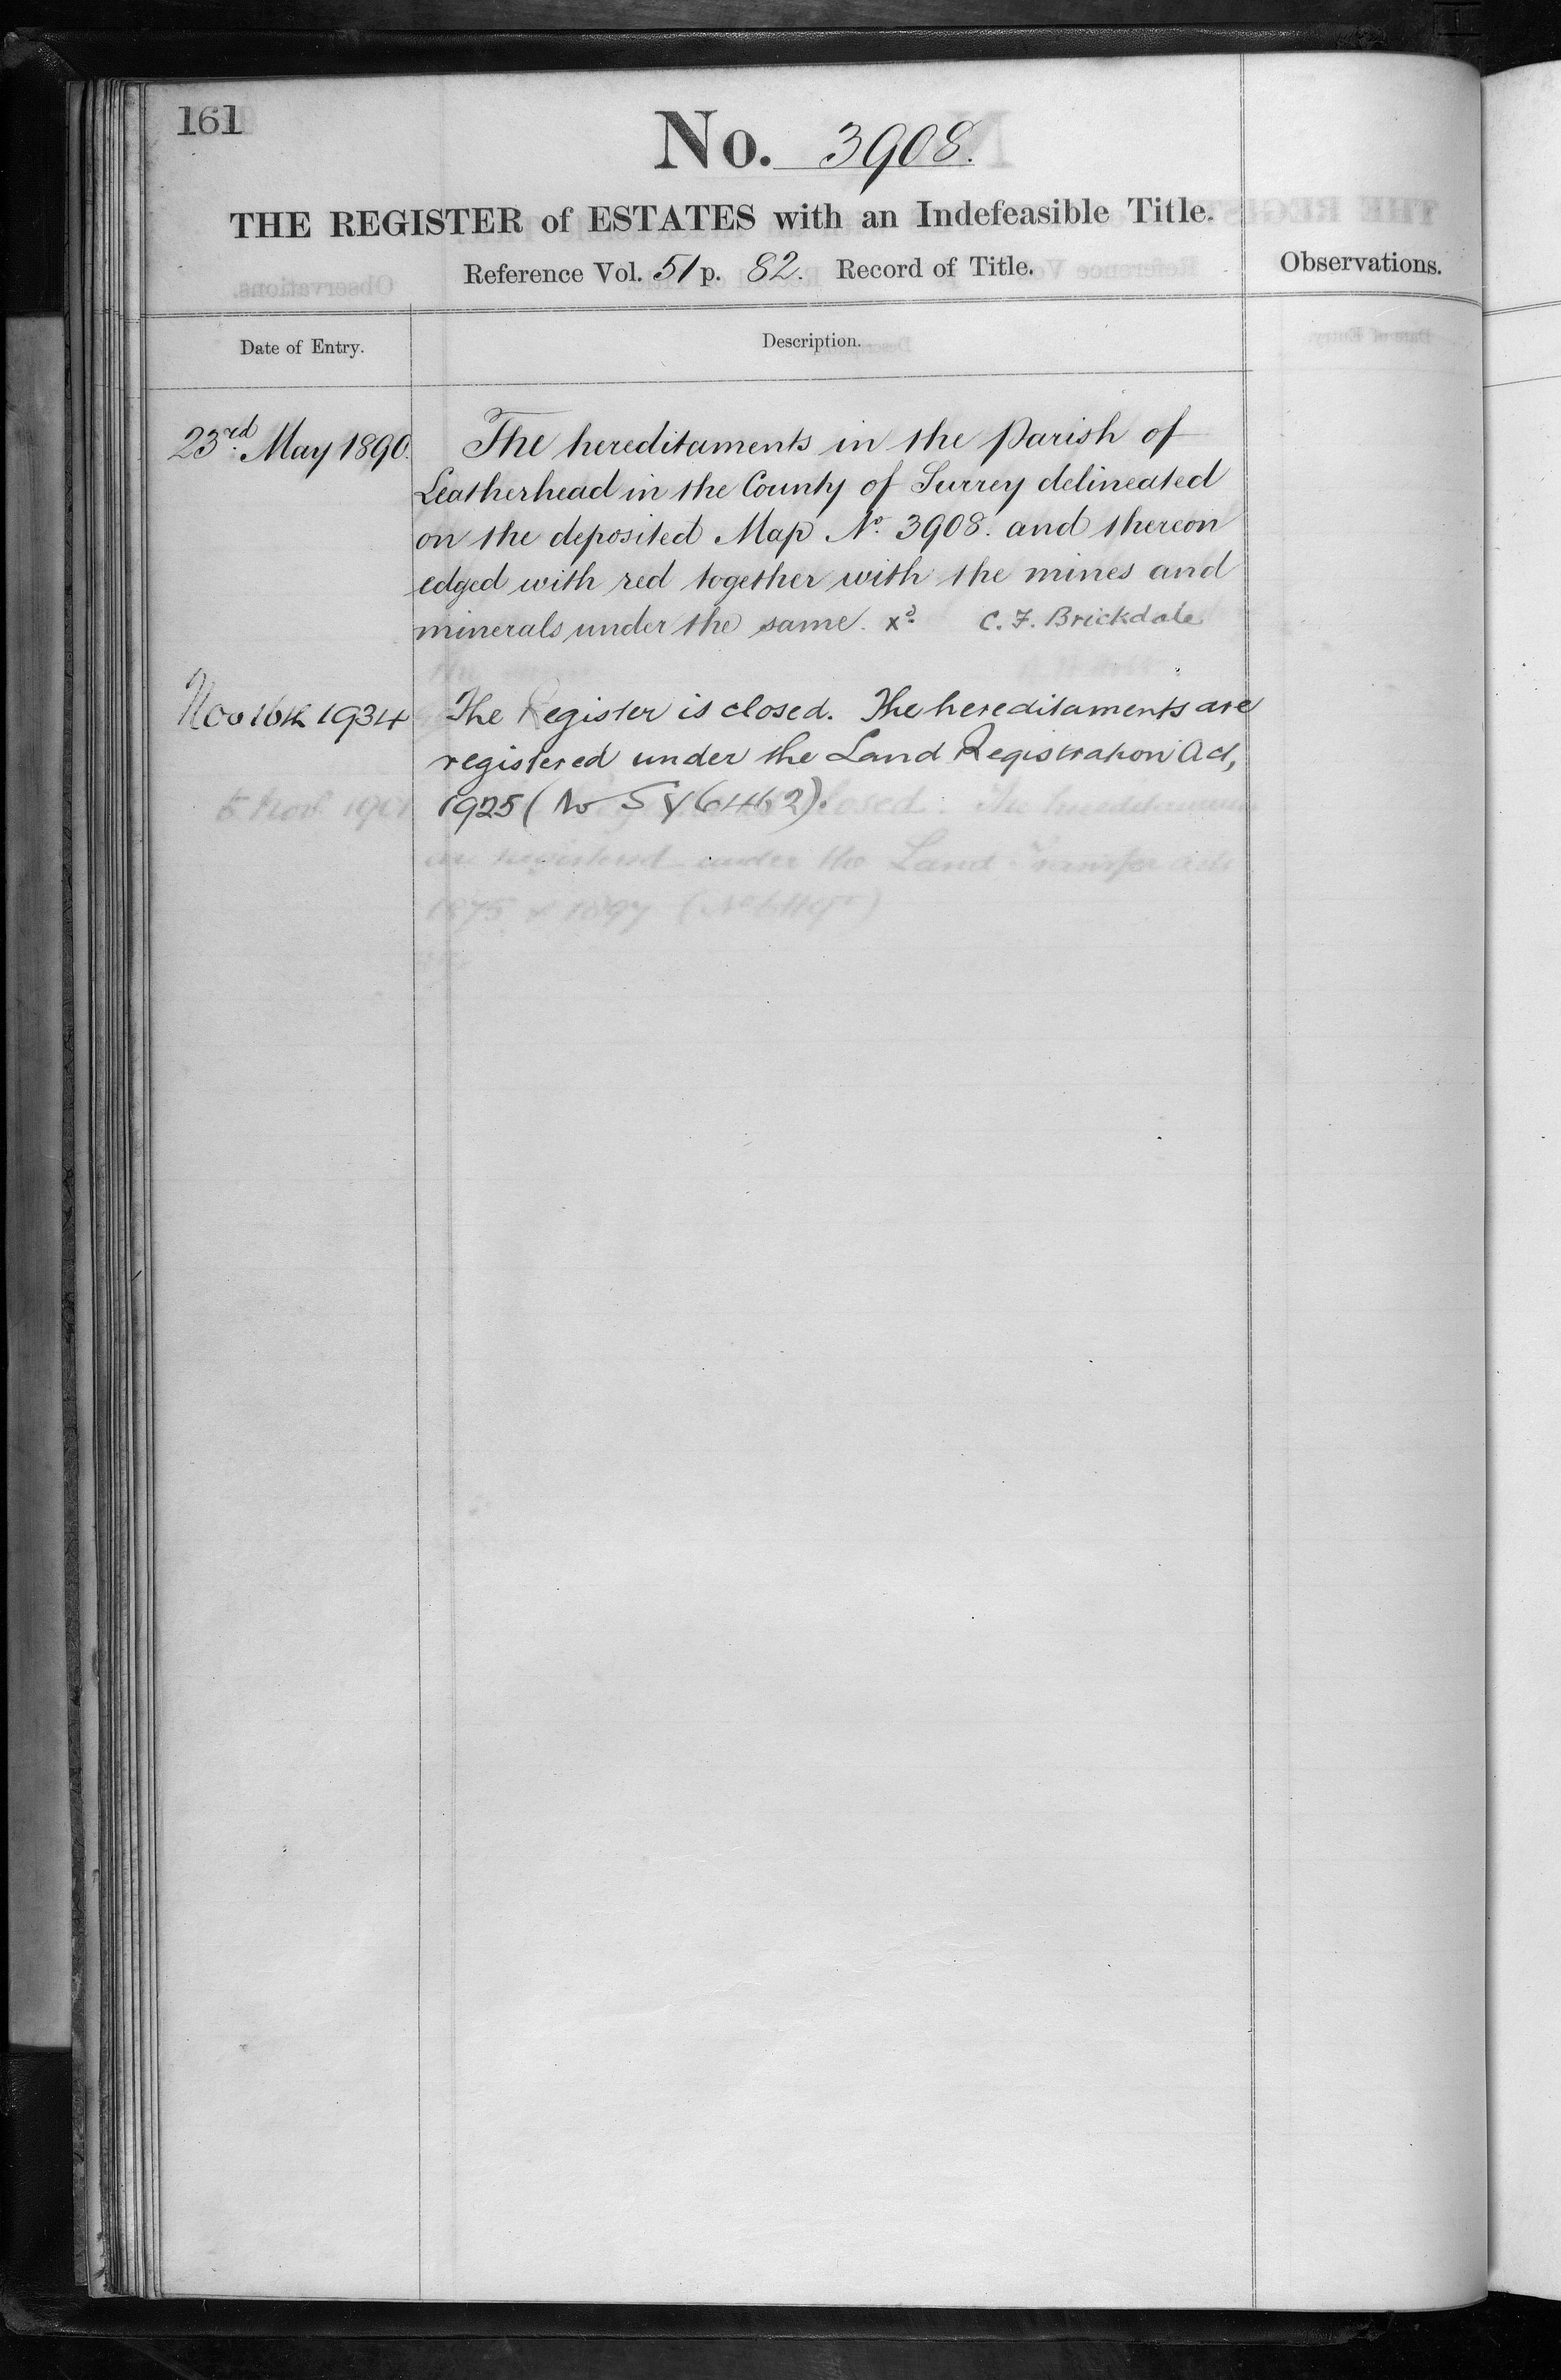 161
No. 3908.
THE REGISTER of ESTATES with an Indefeasible Title.
Reference Vol. 51 p. 82. Record of Title.
Observations.
Date of Entry.
Description.
23rd May 1890. The hereditaments in the Parish of
Leatherhead in the County of Surrey delineated
on the deposited Map No. 3908. and thereon
edged with red together with the mines and
minerals under the same. xd C. F. Brickdale
Nov 16th 1934 The Register is closed. The hereditaments are
registered under the Land Registration Act,
1925 (No SY 6462).